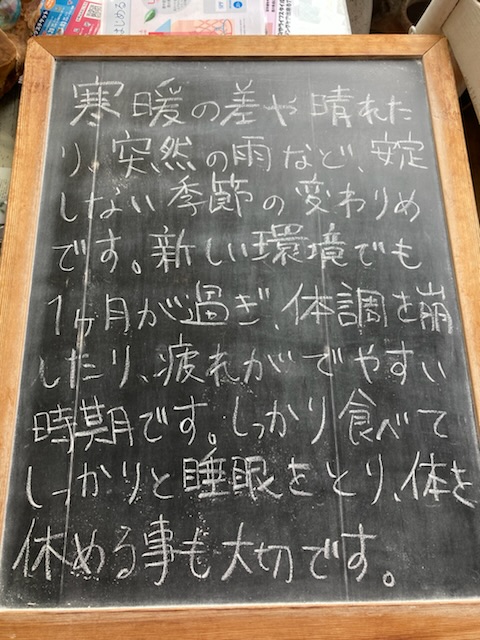 はじめる
寒暖の差や晴れた
り、突然の雨など、安定
しない季節の変わりめ
です。新しい環境でも
1ヶ月が過ぎ、体調を崩
したり、疲れがでやすい
時期です。しっかり食べて
しっかりと睡眠をとり、体を
休める事も大切です。